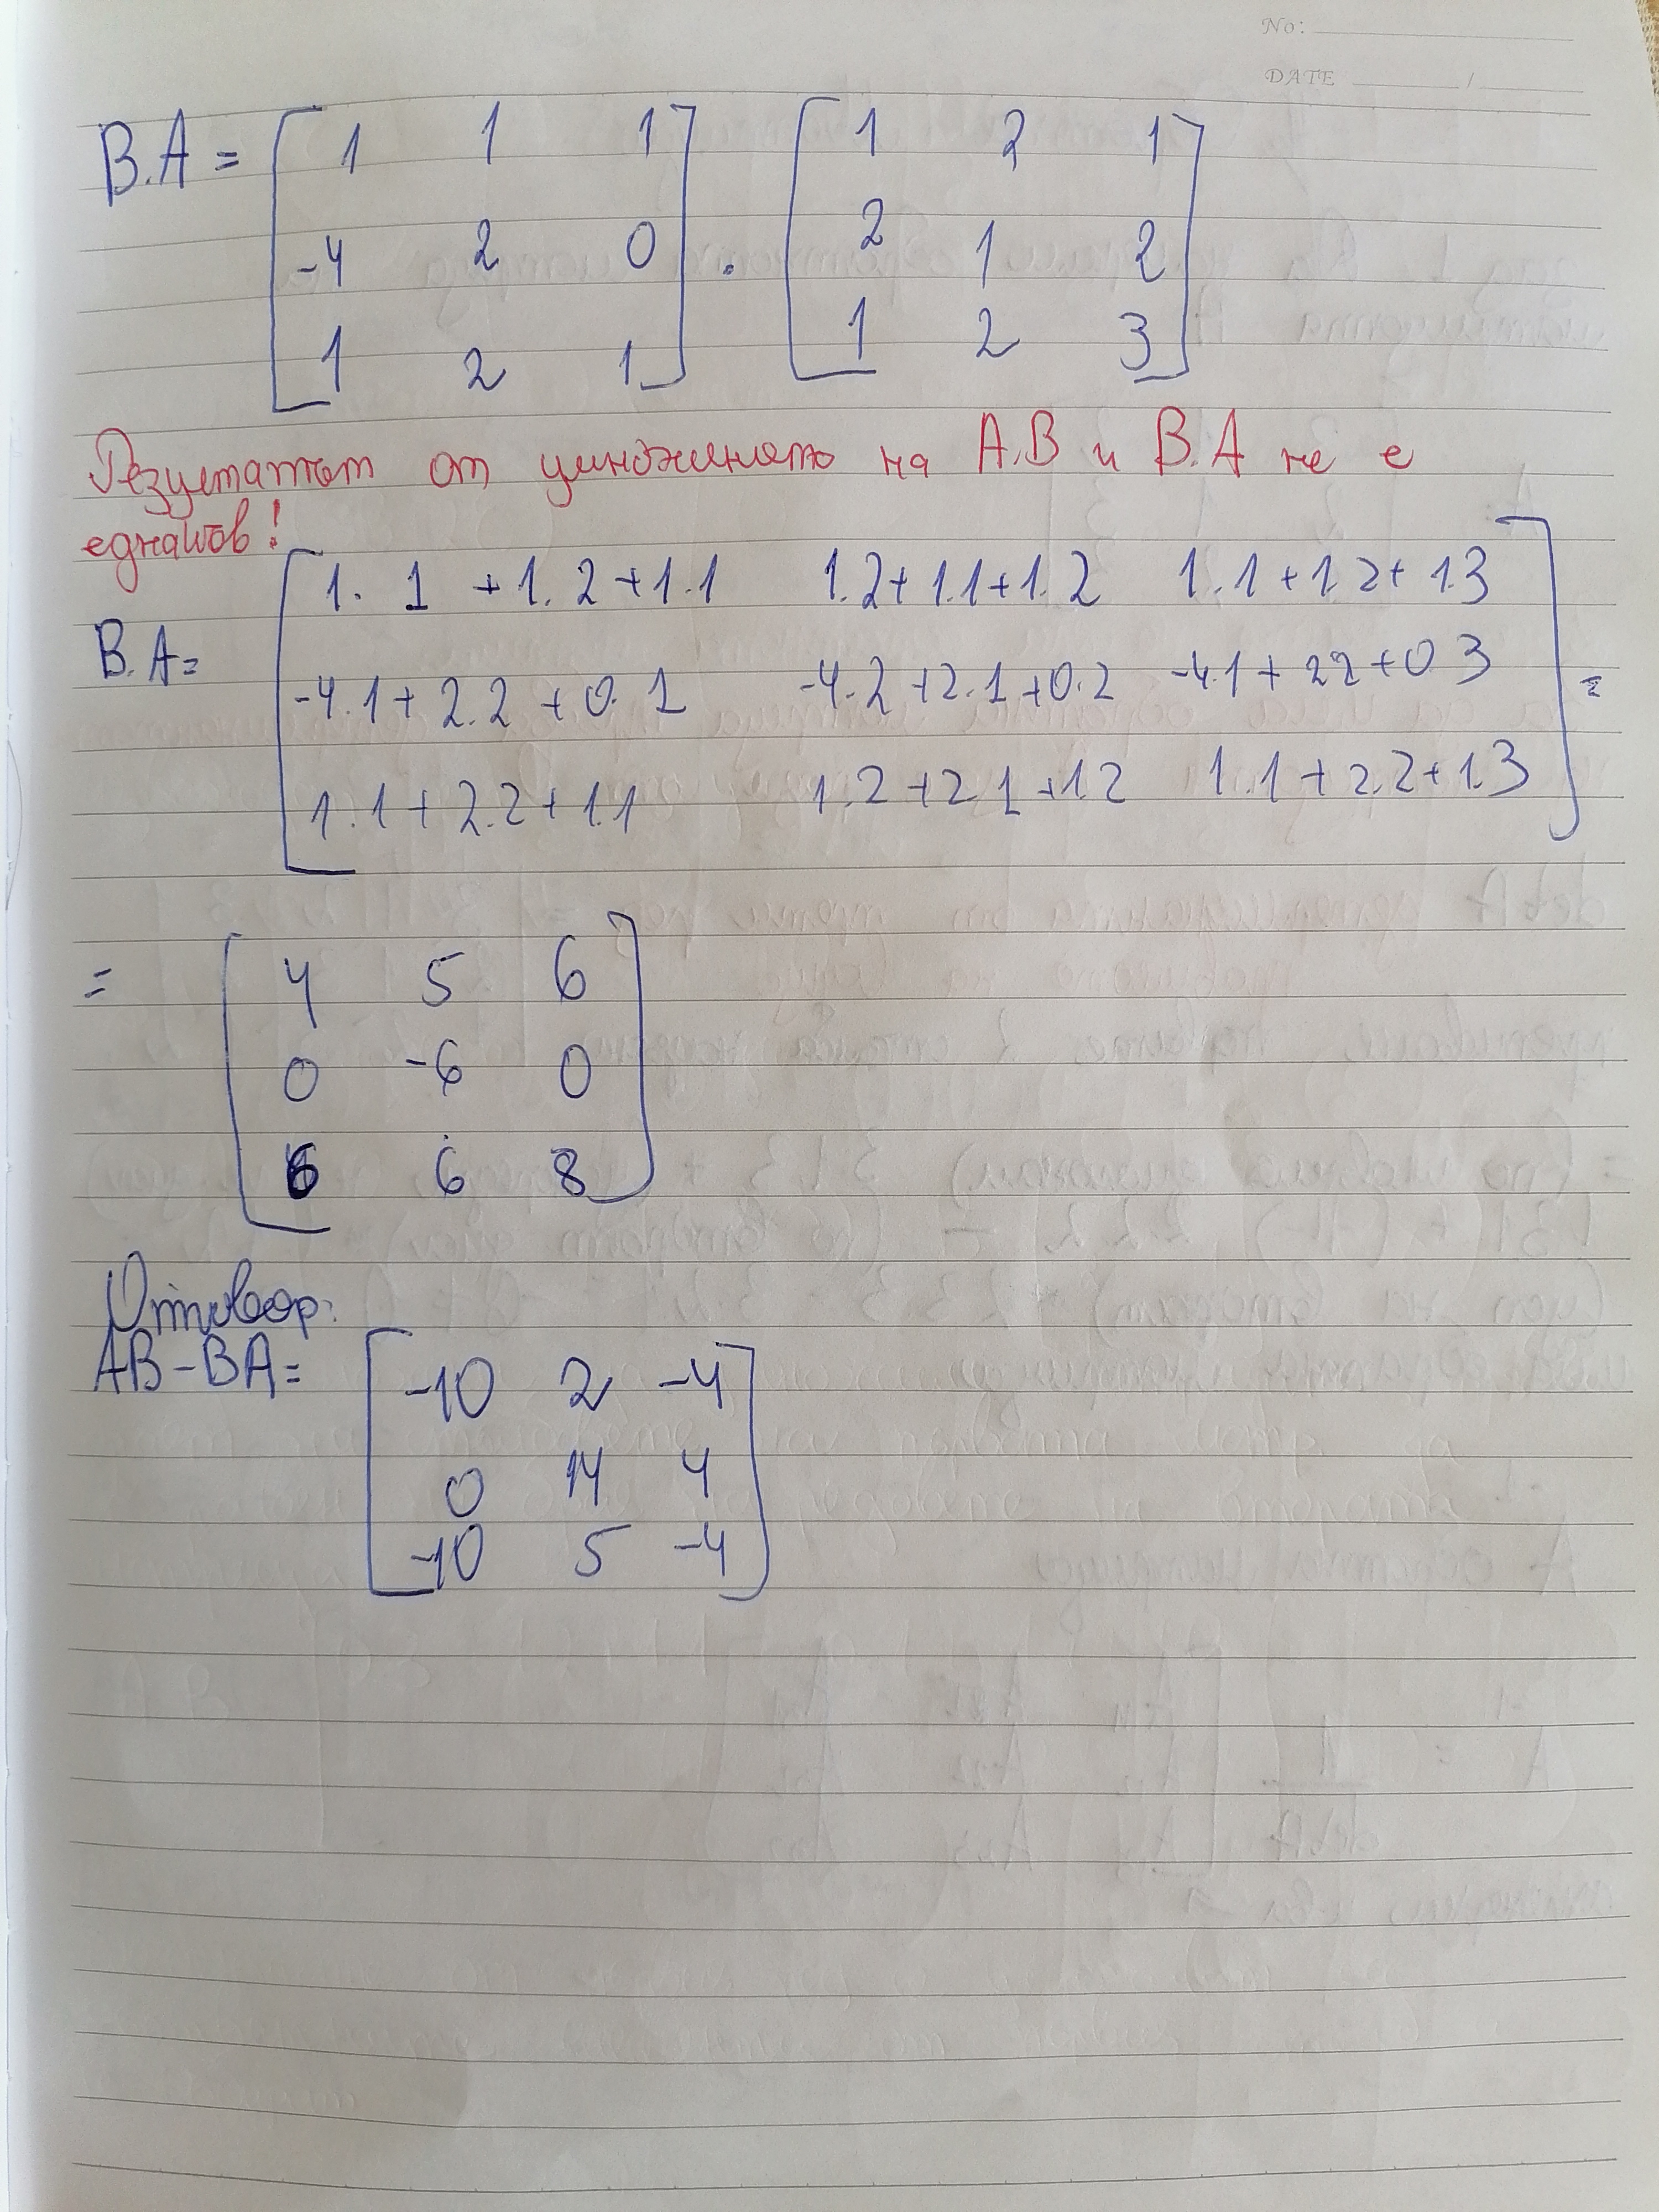 No:
DATE /
B.A = [ 1 1 1 ] . [ 1 2 1 ]
-4 2 0 2 1 2
1 2 1 1 2 3
Резултатът от умножението на A.B и B.A не е
еднакъв!
B.A= [ 1. 1 + 1. 2 + 1.1 1.2 + 1.1 + 1. 2 1. 1 + 1.2 + 1.3 ] =
-4.1 + 2.2 + 0. 1 -4.2 + 2.1 + 0.2 -4.1 + 22 + 0 3
1. 1 + 2.2 + 1.1 1.2 + 2 1 + 1.2 1. 1 + 2.2 + 1.3
= [ 4 5 6 ]
0 -6 0
6 6 8
Отговор:
AB-BA= [ -10 2 -4 ]
0 14 4
-10 5 -4